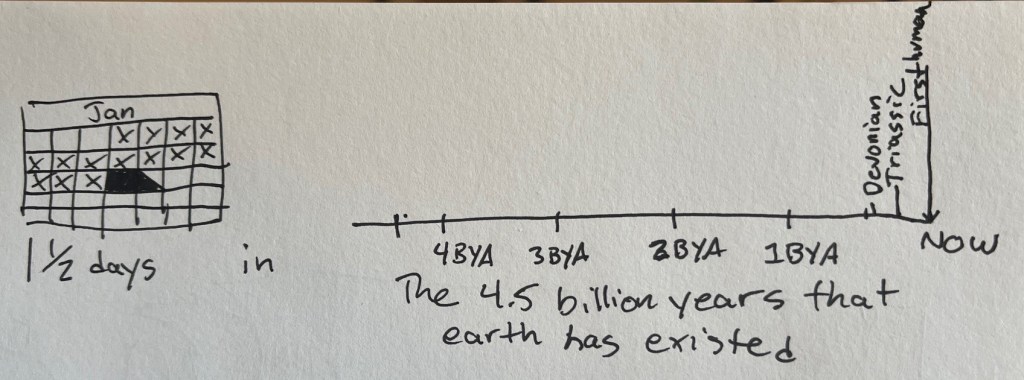 Jan
X X X X
X X X X X X X
X X X
1 1/2 days
in
Devonian
Triassic
First human
4BYA 3BYA 2BYA 1BYA NOW
The 4.5 billion years that
earth has existed